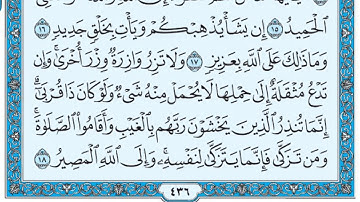 ٱلْحَمِيدُ ١٥ إِن يَشَأْ يُذْهِبْكُمْ وَيَأْتِ بِخَلْقٍ جَدِيدٍ ١٦
وَمَا ذَٰلِكَ عَلَى ٱللَّهِ بِعَزِيزٍ ١٧ وَلَا تَزِرُ وَازِرَةٌ وِزْرَ أُخْرَىٰ ۚ وَإِن
تَدْعُ مُثْقَلَةٌ إِلَىٰ حِمْلِهَا لَا يُحْمَلْ مِنْهُ شَىْءٌ وَلَوْ كَانَ ذَا قُرْبَىٰٓ ۗ
إِنَّمَا تُنذِرُ ٱلَّذِينَ يَخْشَوْنَ رَبَّهُم بِٱلْغَيْبِ وَأَقَامُوا۟ ٱلصَّلَوٰةَ ۚ
وَمَن تَزَكَّىٰ فَإِنَّمَا يَتَزَكَّىٰ لِنَفْسِهِۦ ۚ وَإِلَى ٱللَّهِ ٱلْمَصِيرُ ١٨
٤٣٦